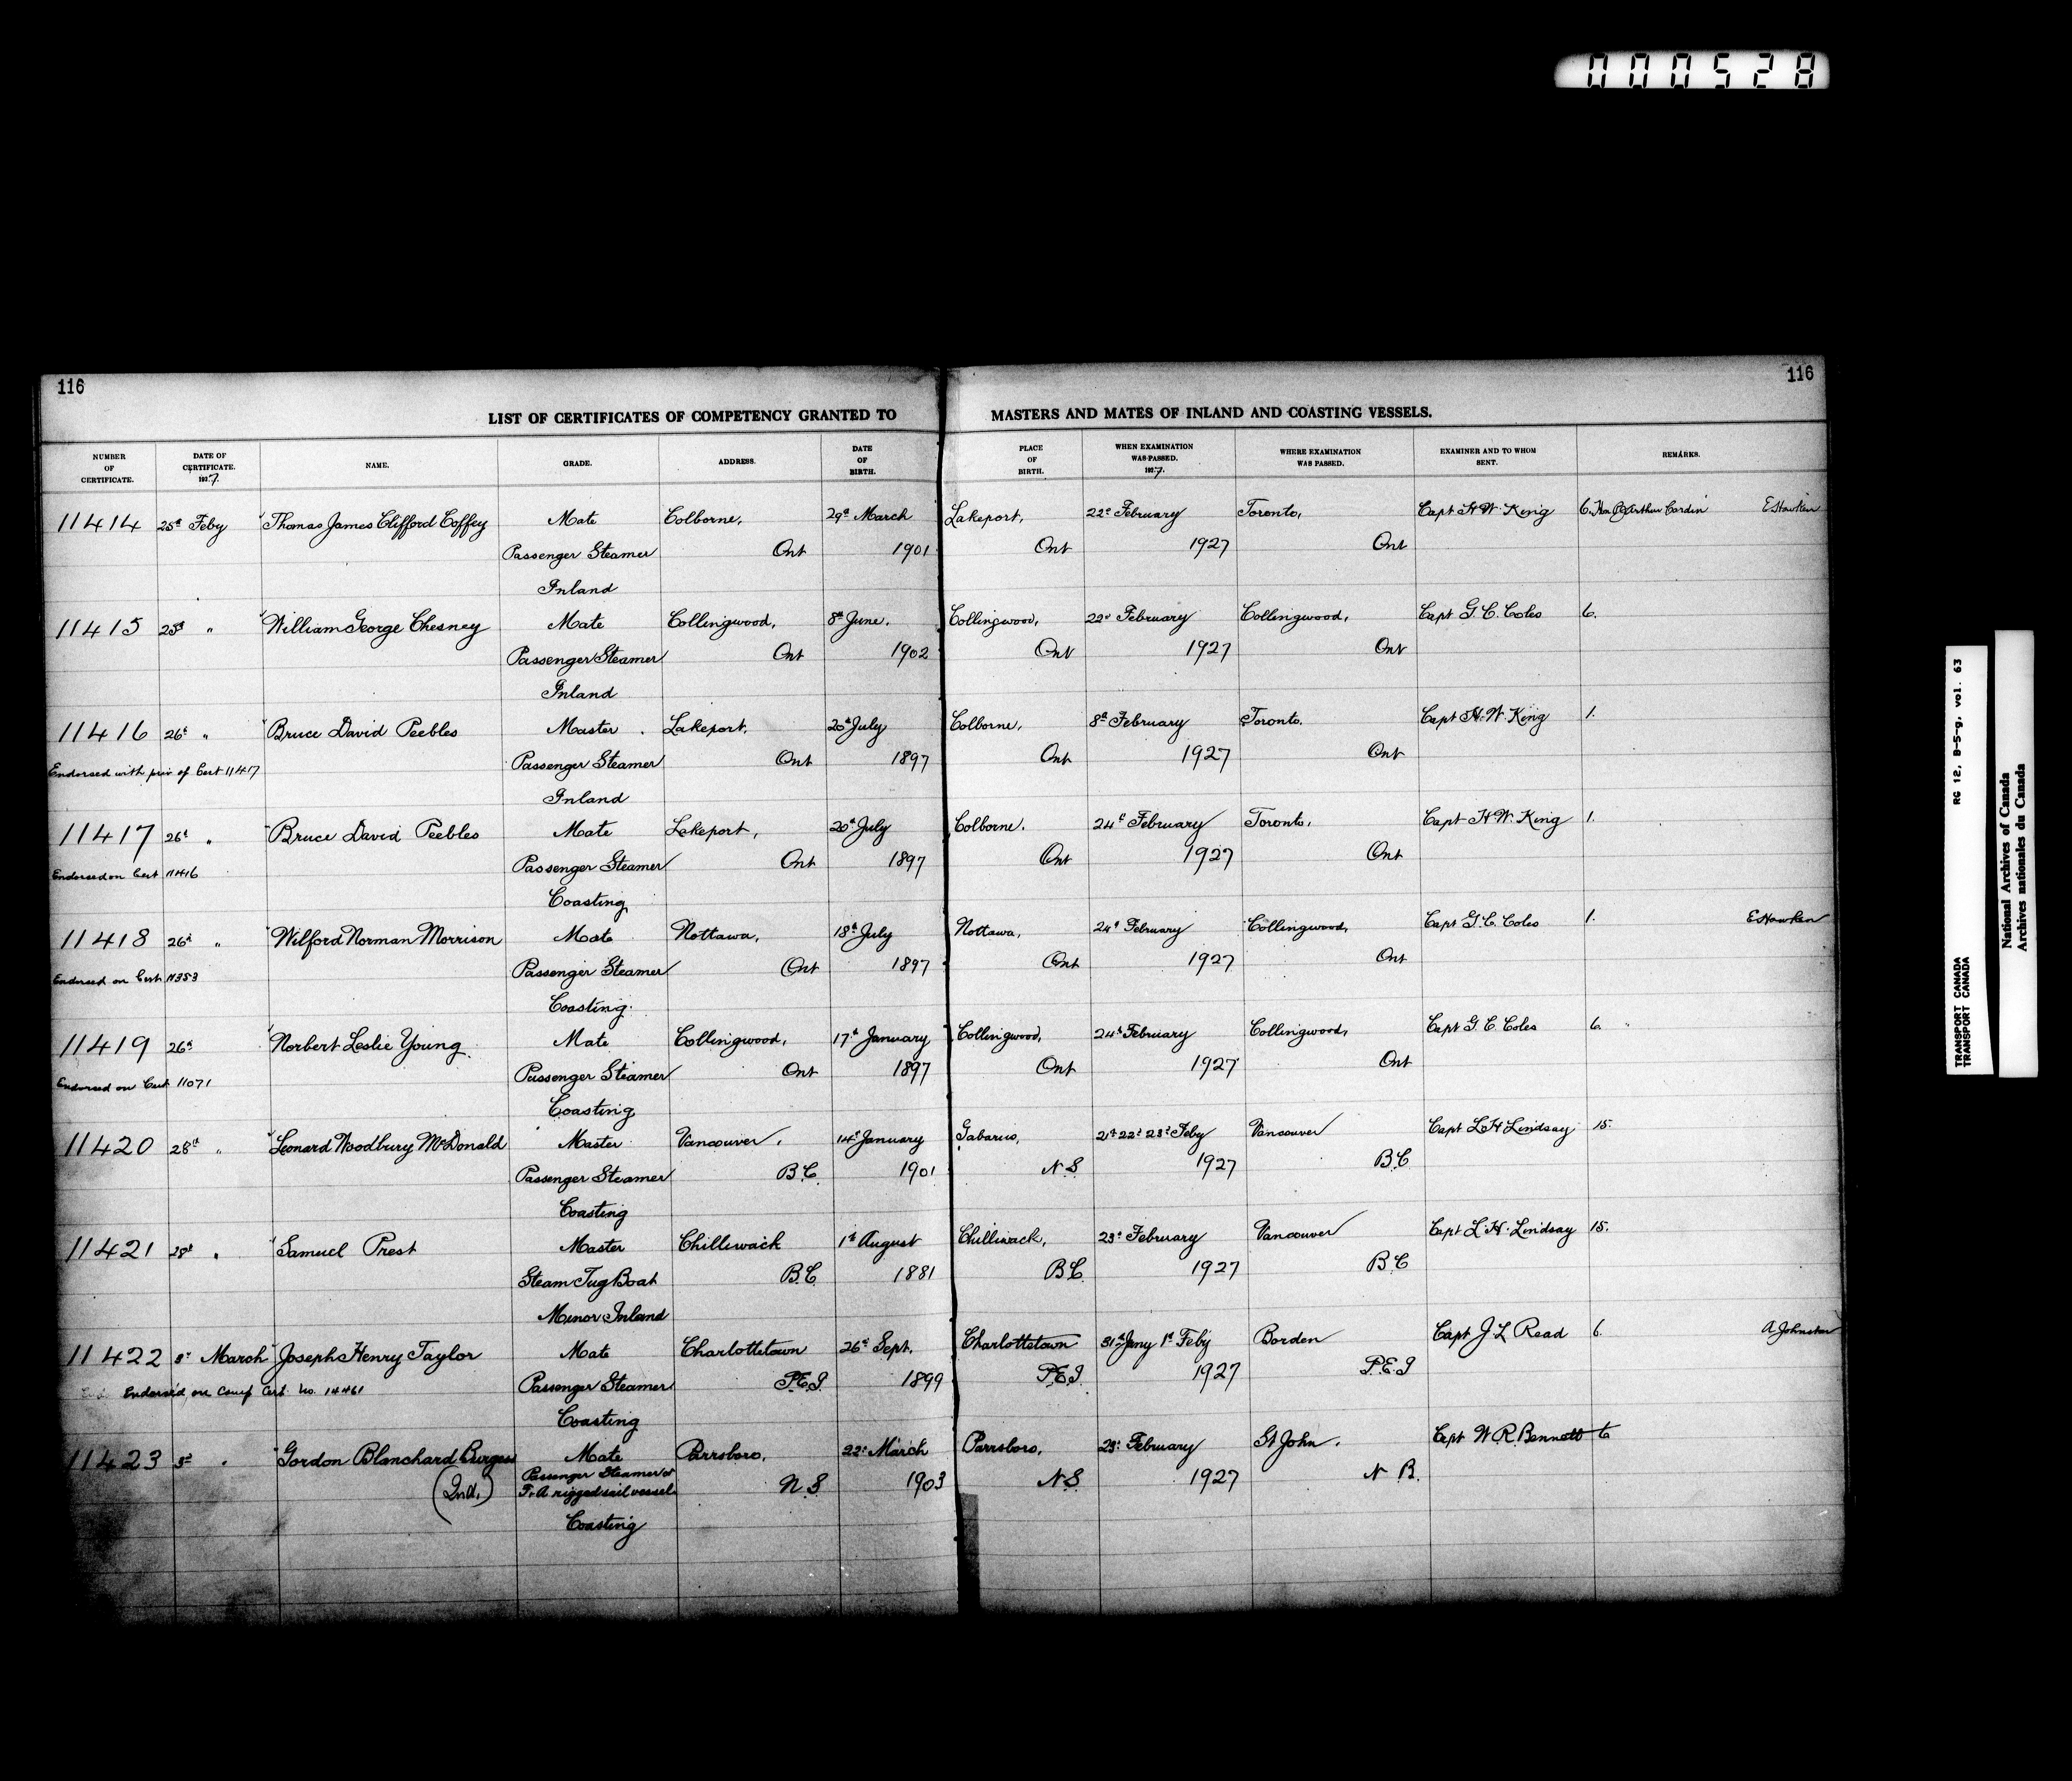 000528
116
116
LIST OF CERTIFICATES OF COMPETENCY GRANTED TO MASTERS AND MATES OF INLAND AND COASTING VESSELS.
NUMBER OF CERTIFICATE. DATE OF CERTIFICATE. 1927. NAME. GRADE. ADDRESS. DATE OF BIRTH. PLACE OF BIRTH. WHEN EXAMINATION WAS PASSED. 1927. WHERE EXAMINATION WAS PASSED. EXAMINER AND TO WHOM SENT. REMARKS.
11414 25th Feby Thomas James Clifford Coffey Mate Colborne, 29th March Lakeport, 22d February Toronto, Capt H.W. King 6. Arthur Cardin E Hawken
Passenger Steamer Ont 1901 Ont 1927 Ont
Inland
11415 25th " William George Chesney Mate Collingwood, 8th June. Collingwood, 22d February Collingwood, Capt G.C. Coles 6.
Passenger Steamer Ont 1902 Ont 1927 Ont
Inland
11416 26th " Bruce David Peebles Master Lakeport, 20th July Colborne, 8th February Toronto. Capt H.W. King 1.
Endorsed with priv of Cert 11417 Passenger Steamer Ont 1897 Ont 1927 Ont
Inland
11417 26th " Bruce David Peebles Mate Lakeport, 20th July Colborne. 24th February Toronto, Capt H.W. King 1.
Endorsed on Cert 11416 Passenger Steamer Ont 1897 Ont 1927 Ont
Coasting
11418 26th " Wilford Norman Morrison Mate Nottawa, 18th July Nottawa, 24th February Collingwood, Capt G.C. Coles 1. E Hawken
Endorsed on Cert 11353 Passenger Steamer Ont 1897 Ont 1927 Ont
Coasting
11419 26th Norbert Leslie Young Mate Collingwood, 17th January Collingwood, 24th February Collingwood, Capt G.C. Coles 6.
Endorsed on Cert 11071 Passenger Steamer Ont 1897 Ont 1927 Ont
Coasting
11420 28th " Leonard Woodbury McDonald Master Vancouver, 14th January Gabarus, 21st 22d 23d Feby Vancouver Capt L.H Lindsay 15.
Passenger Steamer B.C. 1901 N.S. 1927 B.C
Coasting
11421 28th " Samuel Prest Master Chilliwack 1st August Chilliwack, 23d February Vancouver Capt L.H. Lindsay 15.
Steam Tug Boat B.C. 1881 B.C. 1927 B.C
Minor Inland
11422 March Joseph Henry Taylor Mate Charlottetown 26th Sept. Charlottetown 31st Jany 1st Feby Borden Capt J.L Read 6. A Johnston
Endorsed on Comp Cert. No. 14461 Passenger Steamer P.E.I. 1899 P.E.I. 1927 P.E.I
Coasting
11423 " Gordon Blanchard Burgess Mate Parrsboro, 22d March Parrsboro, 23d February St John. Capt W.R. Bennett 6
Passenger Steamer or
F & A rigged sail vessel N.S. 1903 N.S. 1927 N B.
Coasting
RG 12, B-5-g, vol. 63
TRANSPORT CANADA
TRANSPORT CANADA
National Archives of Canada
Archives nationales du Canada